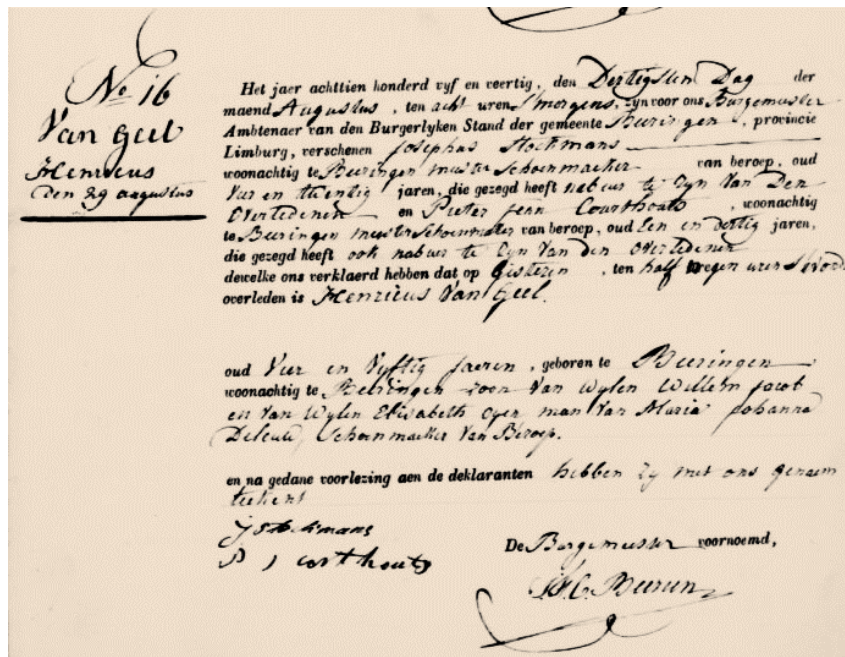 No 16
Van Geel
Henricus
Den 29 augustus
Het jaer achttien honderd vyf en veertig, den Dertigsten Dag der
maend Augustus, ten acht uren Smorgens, zyn voor ons Burgemeester
Ambtenaer van den Burgerlyken Stand der gemeente Beeringen, provincie
Limburg, verschenen Josephus Stockmans
woonachtig te Beeringen meester Schoenmaeker van beroep, oud
Vier en twentig jaren, die gezegd heeft nabuer te Zyn Van Den
Overledenen en Pieter Courthouts, woonachtig
te Beeringen meester van beroep, oud Een en dertig jaren,
die gezegd heeft ook nabuer te Zyn Van den Overledenen
dewelke ons verklaerd hebben dat op Gisteren, ten half negen uren
overleden is Henricus Van Geel.
oud Vier en Vyftig Jaeren, geboren te Beeringen
woonachtig te Beeringen zoon Van Wylen Willem Jacob
en Van Wylen Elisabeth man Van Maria Johanna
Schoenmaeker Van Beroep.
en na gedane voorlezing aen de deklaranten hebben Zy met ons
teekent
J Stockmans
P J Corthouts
De Borgemeester voornoemd,